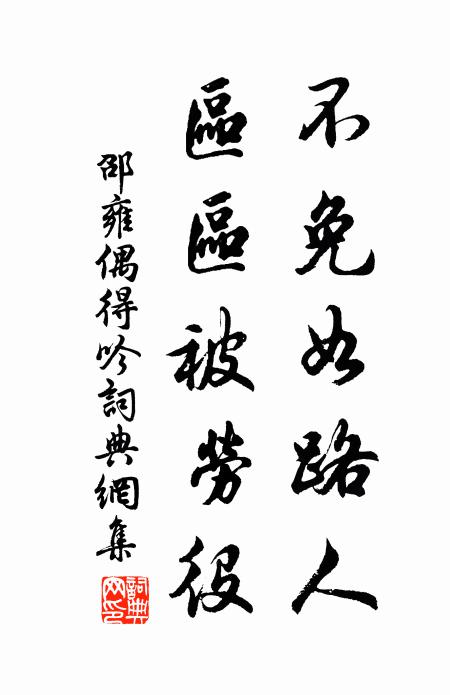 不免如路人
區區被勞役
邵雍偶得吟詞典網集
詞典网印